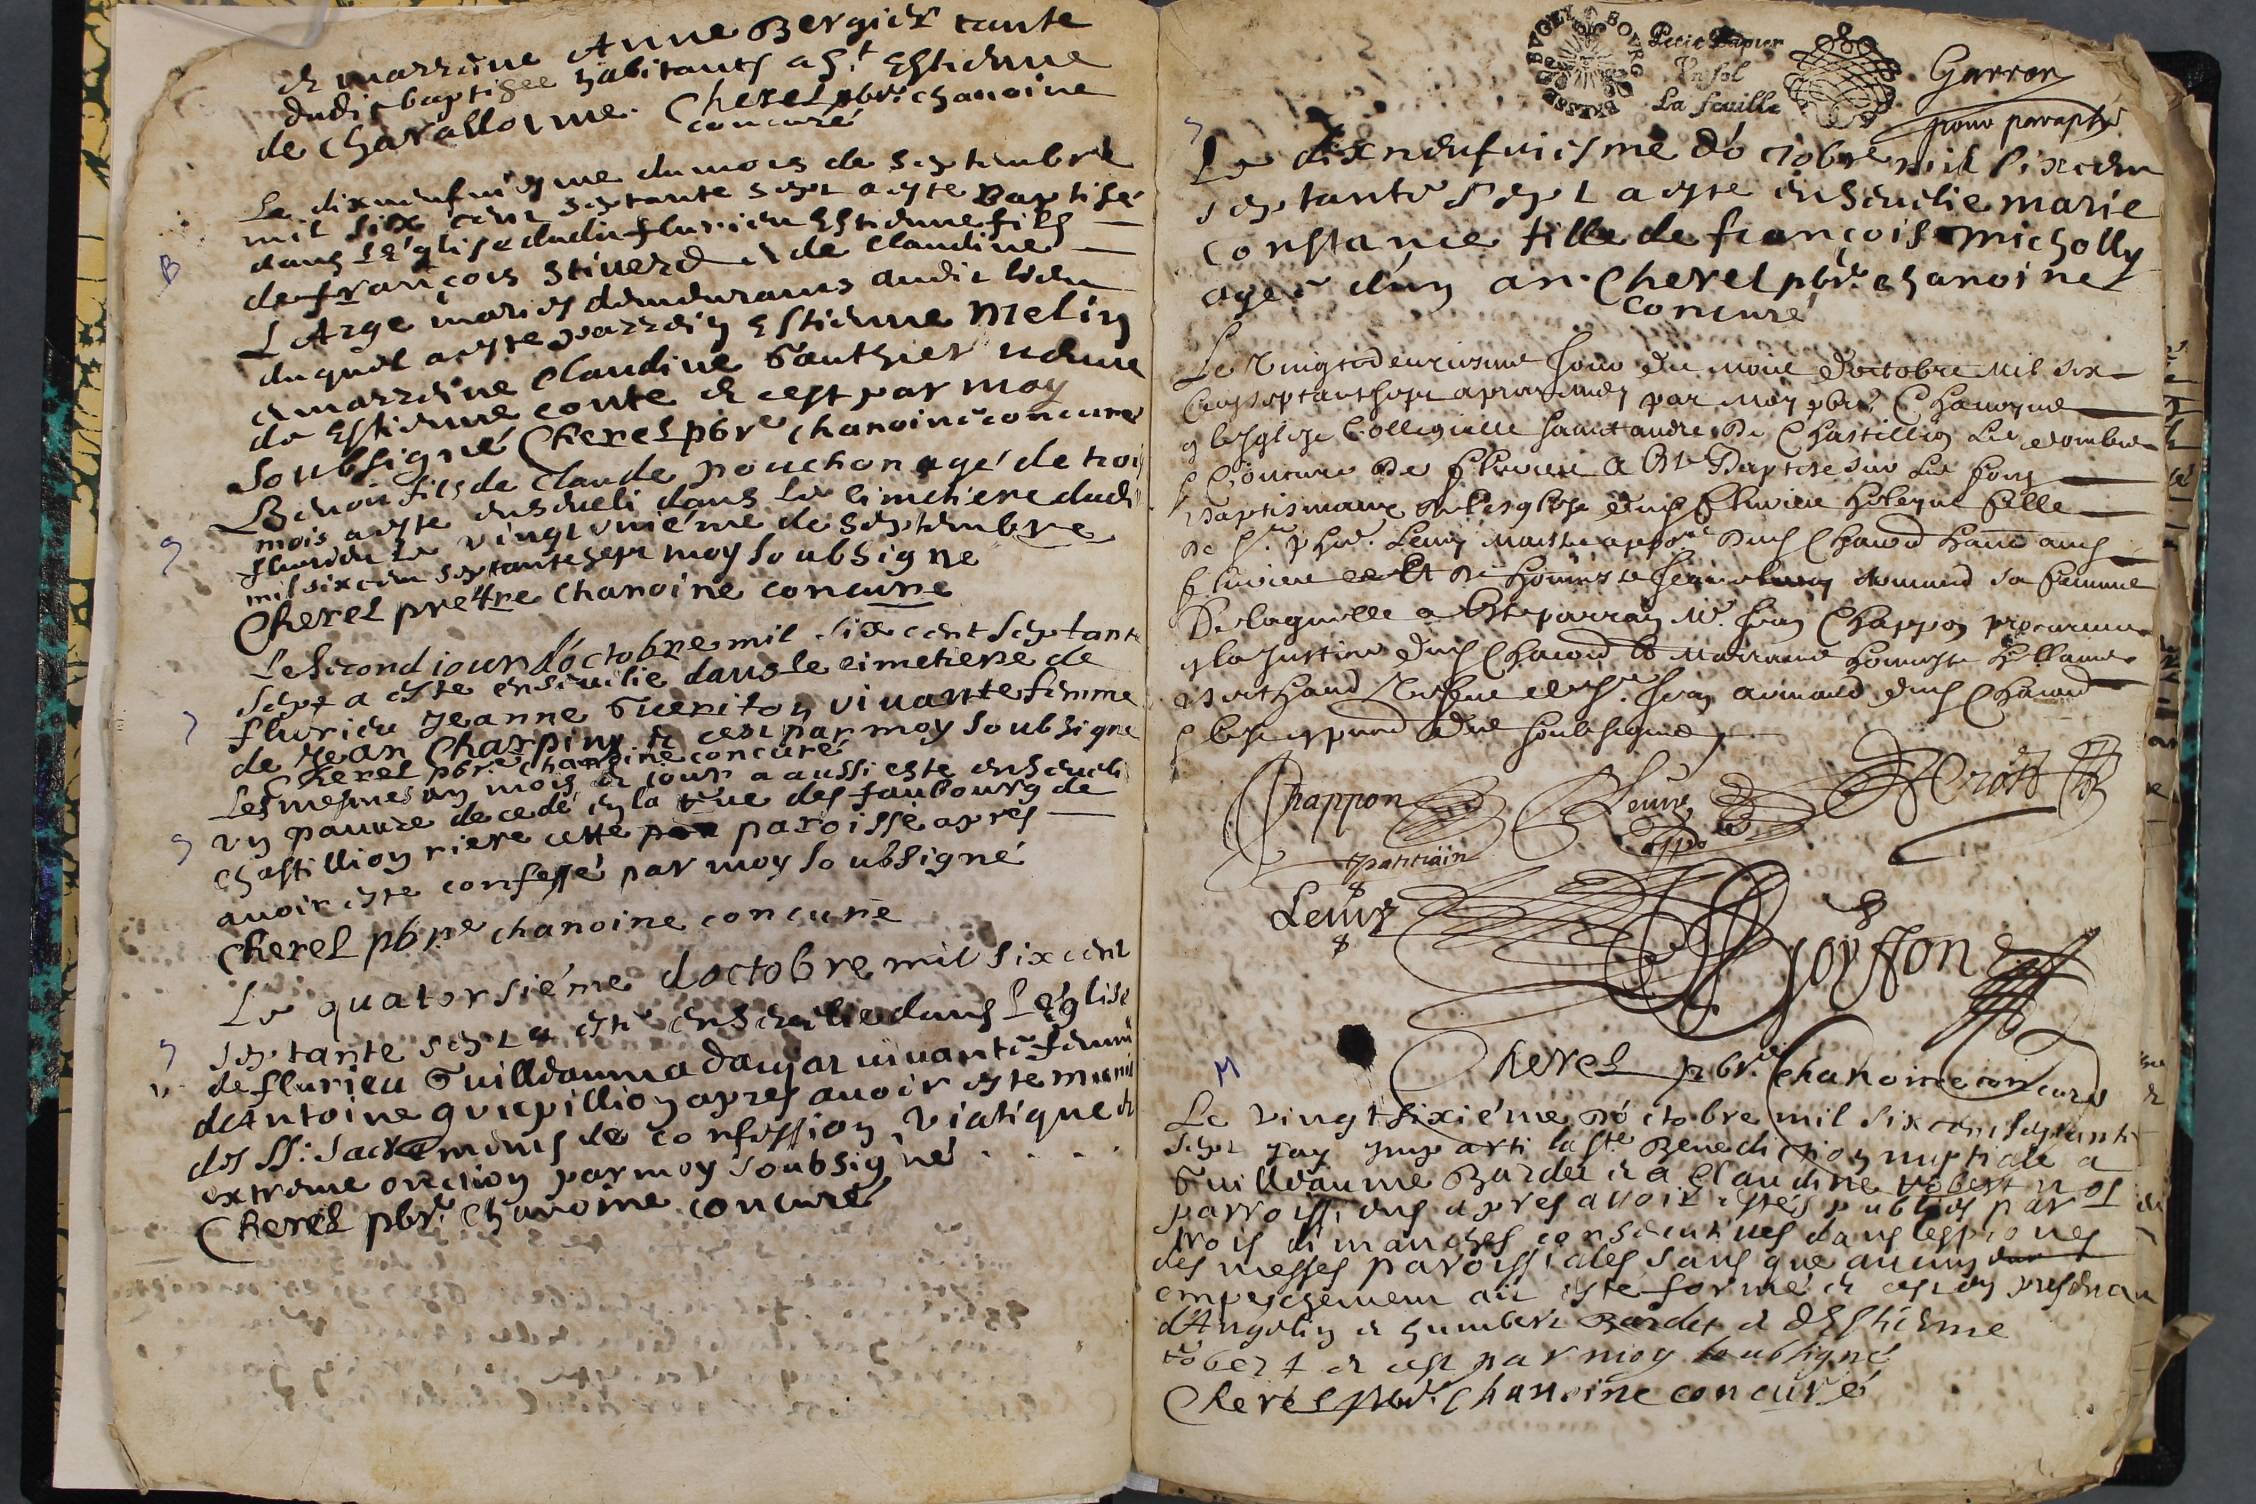 & marraine Anne Bergier tante
dudit baptisee habitants a St Estienne
de Chavallonne. Cherel pbre chanoine
concuré
Le dixneufuiesme du mois de septembre
mil six cent septante sept a este Baptisé
dans l'église dudit flurieu Estienne fils
de françois Stiuerd & de Claudine
L Arge mariés demeurans audit lieu
duquel a este parrain Estienne Melin
& marraine Claudine Gauthier uefue
de Estienne conte & cest par moy
soubsigné Cherel pbre chanoine concuré
Benoit fils de Claude pouchon agé de trois
mois a este enseueli dans le cimetiere dudit
flurieu le vingt unième de septembre
mil six cent septante sept moy soubsigné
Cherel prestre chanoine concuré
Le second iour d'octobre mil six cent septante
sept a este enseuelie dans le cimetiere de
flurieu Jeanne Gueriton viuante femme
de Jean Charpiny & cest par moy soubsigné
Cherel pbre chanoine concuré
Les mesmes an mois & iour a aussi este enseueli
un pauure decedé en la rue des faubourg de
chastillion riere cette paroisse apres
auoir este confessé par moy soubsigné
Cherel pbre chanoine concuré
Le quatorsiéme d'octobre mil six cent
septante sept a esté enseuelie dans l'église
de flurieu Guilleauma viuante femme
d'Antoine guepillion apres auoir este muni
des SS: sacrements de confession, viatique &
extreme onction par moy soubsigné
Cherel pbr. chanoine concuré
BRESSE BUGEY BOURG
Petit Papier
Un sol
La feuille
Garron
pour paraphe
Le dixneufuiesme d'octobre mil six cent
septante sept a este enseuelie marie
constance fille de françois micholly
agée d'un an. Cherel pbr. chanoine
concuré
Le Vingtdeuxiesme Jour du mois d'octobre mil six
Cens septanthept a par moy pbre Chanoyne
en leglize Collegiale sainct andre de Chastillion Les dombes
& Concure de flurieu a este Baptise sur Les fons
Baptismaux de lesglize dud flurieu fille
de Sr Leuy Maistre appore dud
flurieu et de honneste sa femme
De laquelle a este parrain Mr. Jean Chappon procureur
en la Justice dud & Marraine honneste
Berthaud Sr. Jean dud
soubsignes
Chappon
Leuiy
appo
partiain
Leuiy
Goiffon
Cherel pbr. Chanoine concuré
Le vingtsixiéme d'octobre mil six cent septante
sept jay imparti la ste Benediction nuptiale a
Guilleaume Bardet & a Claudine robert nos
parroissiens apres auoir estés publiés par
trois dimanches consecutiues dans les prones
des messes paroissiales sans que aucun
empeschement ait este formé & ces en presence
d'Angelin & humbert Bardet & d'Estienne
robert & cest par moy soubsigné
Cherel pbr. chanoine concuré